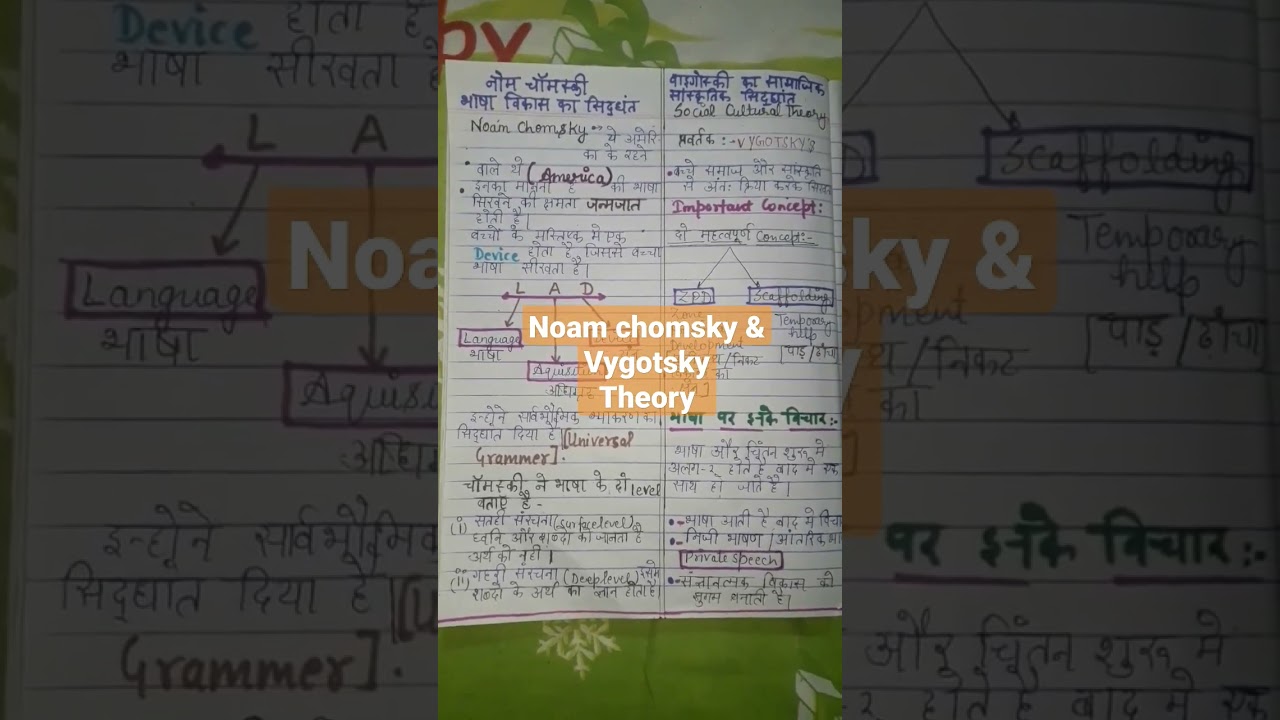 नोम चॉमस्की
भाषा विकास का सिद्धंत
Noam Chomsky
ये अमेरि-
का के रहने
वाले थे (America)
इनका मानना है की भाषा
सिखने की क्षमता जन्मजात
होती है।
बच्चों के मस्तिष्क मे एक
Device होता है जिससे बच्चा
भाषा सीखता है।
L A D
Language
भाषा
इन्होने सार्वभौमिक व्याकरण का
सिद्धात दिया है [Universal
Grammer].
चॉमस्की ने भाषा के दो level
बताए है -
(i) सतही संरचना (surface level)
ध्वनि और शब्दो को जानता है
अर्थ को नही।
(ii) गहरी संरचना (Deep level) इसमे
शब्दो के अर्थ का ज्ञान होता है।
वाइगोस्की का सामाजिक
सांस्कृतिक सिद्धांत
Social Cultural Theory
प्रवर्तक :- VYGOTSKY'S
बच्चे समाज और सांस्कृति
से अंतः क्रिया करके
Important Concept:
दो महत्वपूर्ण Concept:-
ZPD
Scaffolding
Temporary
help
[पाड़ / ढाँचा
भाषा पर इनके विचार:-
भाषा और चिंतन शुरू मे
अलग-२ होते है बाद मे एक
साथ हो जाते है।
भाषा आती है बाद मे
निजी भाषण / आंतरिक
Private speech
संज्ञानत्मक विकास को
सुगम बनाती है।
Noam chomsky &
Vygotsky
Theory
Device होता है
भाषा सीखता है
L A
Language
भाषा
इन्होने सार्वभौमिक
सिद्धात दिया है
Grammer].
Scaffolding
Temporary
help
[पाड़ / ढाँचा
/निकट
का
पर इनके विचार:-
और चिंतन शुरू मे
होते है बाद मे एक